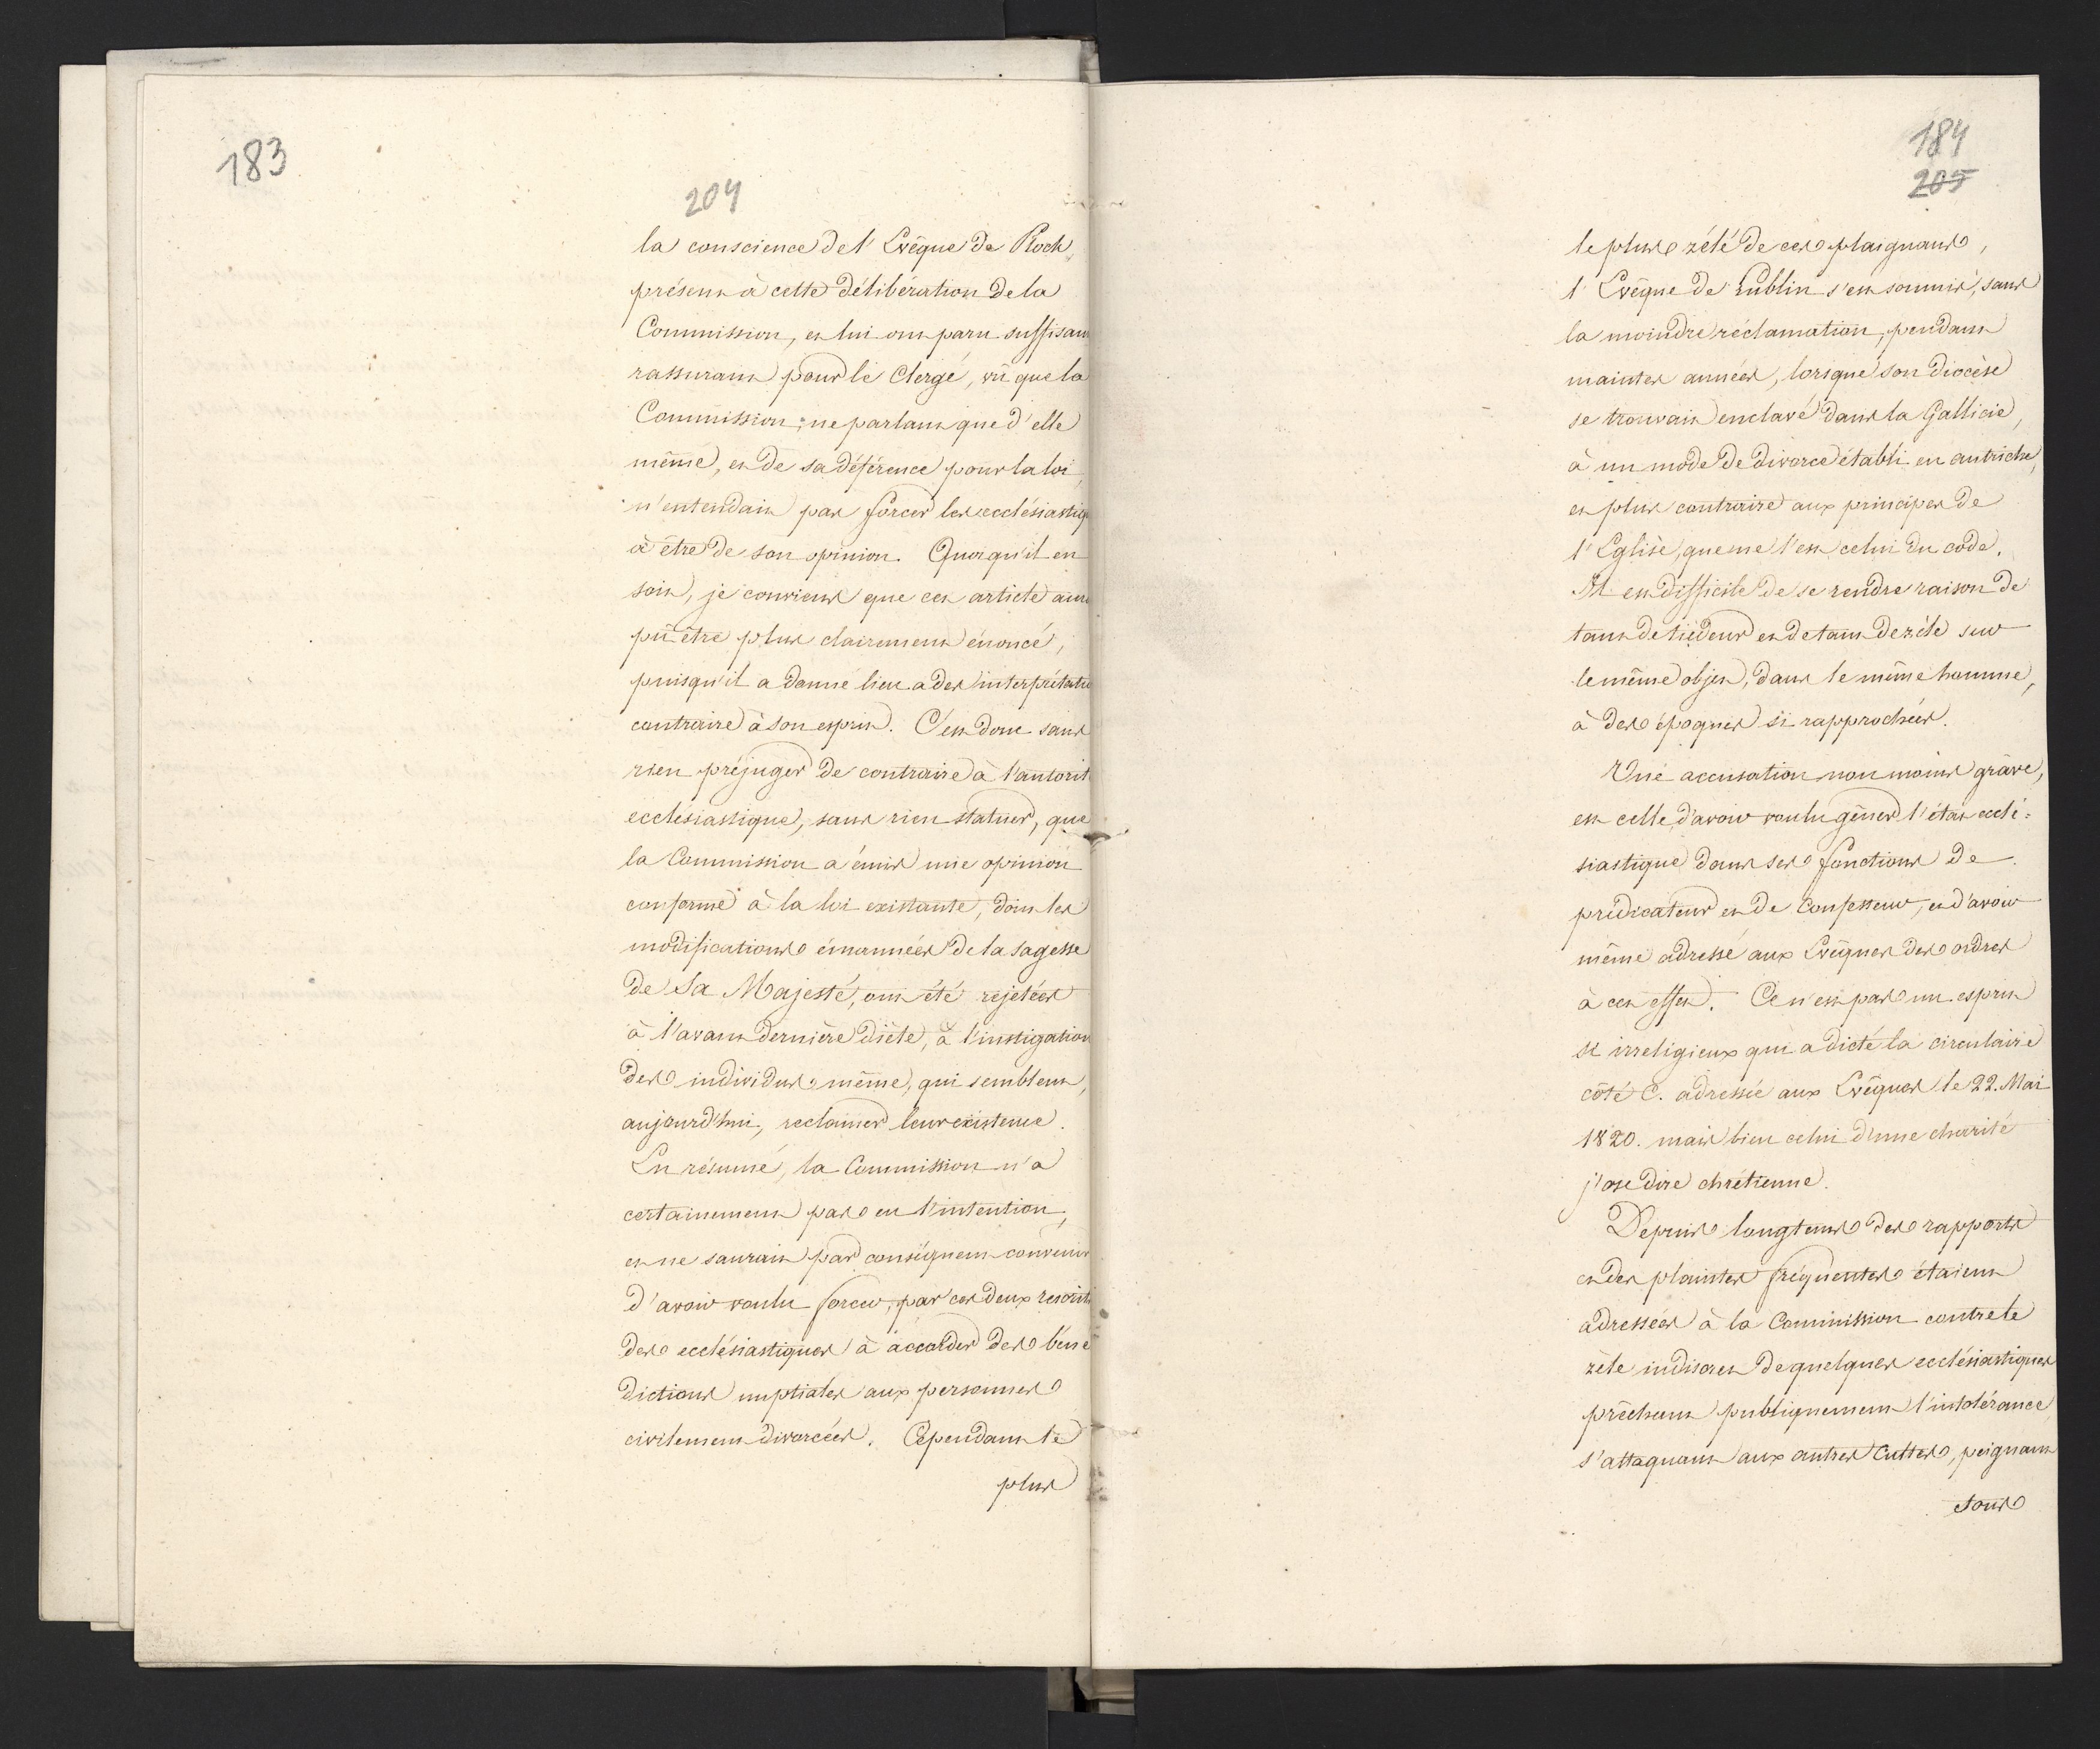 183
204
la conscience de l'Evêque de Plock,
présent à cette délibération de la
Commission, et lui ont paru suffisam
rassurant pour le Clergé, vû que la
Commission, ne parlant que d'elle
même, et de sa déférence pour la loi,
n'entendait pas forcer les ecclésiastiq
à être de son opinion. Quoiqu'il en
soit, je conviens que cet article aura
pû être plus clairement énoncé,
puisqu'il a donné lieu a des interprétatio
contraire à son esprit. C'est donc sans
rien préjuger de contraire à l'autorit
ecclésiastique, sans rien statuer, que
la Commission a émis une opinion
conforme à la loi existante, dont les
modifications émannées de la sagesse
de Sa Majesté, ont été rejetées
à l'avant dernière diète, à l'instigation
des individus même, qui semblent,
aujourd'hui, reclamer leur existence.
En résumé, la Commission n'a
certainement pas eu l'intention,
et ne saurait par conséquent convenir
d'avoir voulu forcer, par ces deux rescrits
des ecclésiastiques à accorder des béné
dictions nuptiales aux personnes
civilement divorcées. Cependant le
plus
184
205
le plus zélé de ces plaignans,
l'Evêque de Lublin s'est soumis, sans
la moindre réclamation, pendant
maintes années, lorsque son diocèse
se trouvait enclavé dans la Gallicie,
à un mode de divorce établi en autriche,
et plus contraire aux principes de
l'Eglise, que ne l'est celui du code.
Il est difficile de se rendre raison de
tant de tiédeur et de tant de zèle sur
le même objet, dans le même homme,
à des époques si rapprochées.
Une accusation non moins grâve,
est celle d'avoir voulu gêner l'état ecclé-
siastique dans ses fonctions de
prédicateur et de Confesseur, et d'avoir
même adressé aux Evêques des ordres
à cet effet. Ce n'est pas un esprit
si irreligieux qui a dicté la circulaire
côté C. adressée aux Evêques le 22. Mai
1820. mais bien celui d'une charité
j'ose dire chrétienne.
Depuis longtems des rapports
et des plaintes fréquentes étaient
adressées à la Commission contre le
zèle indiscret de quelques ecclésiastiques
prêchant publiquement l'intolérance,
s'attaquant aux autres Cultes, peignant
sous